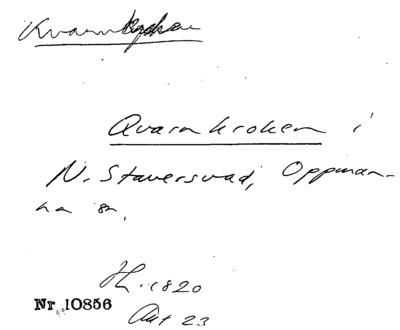 Kvarnkroken
Qvarnkroken i
N. Staversvad, Oppman-
na sn.
H. 1820
Akt 23
Nr 10856